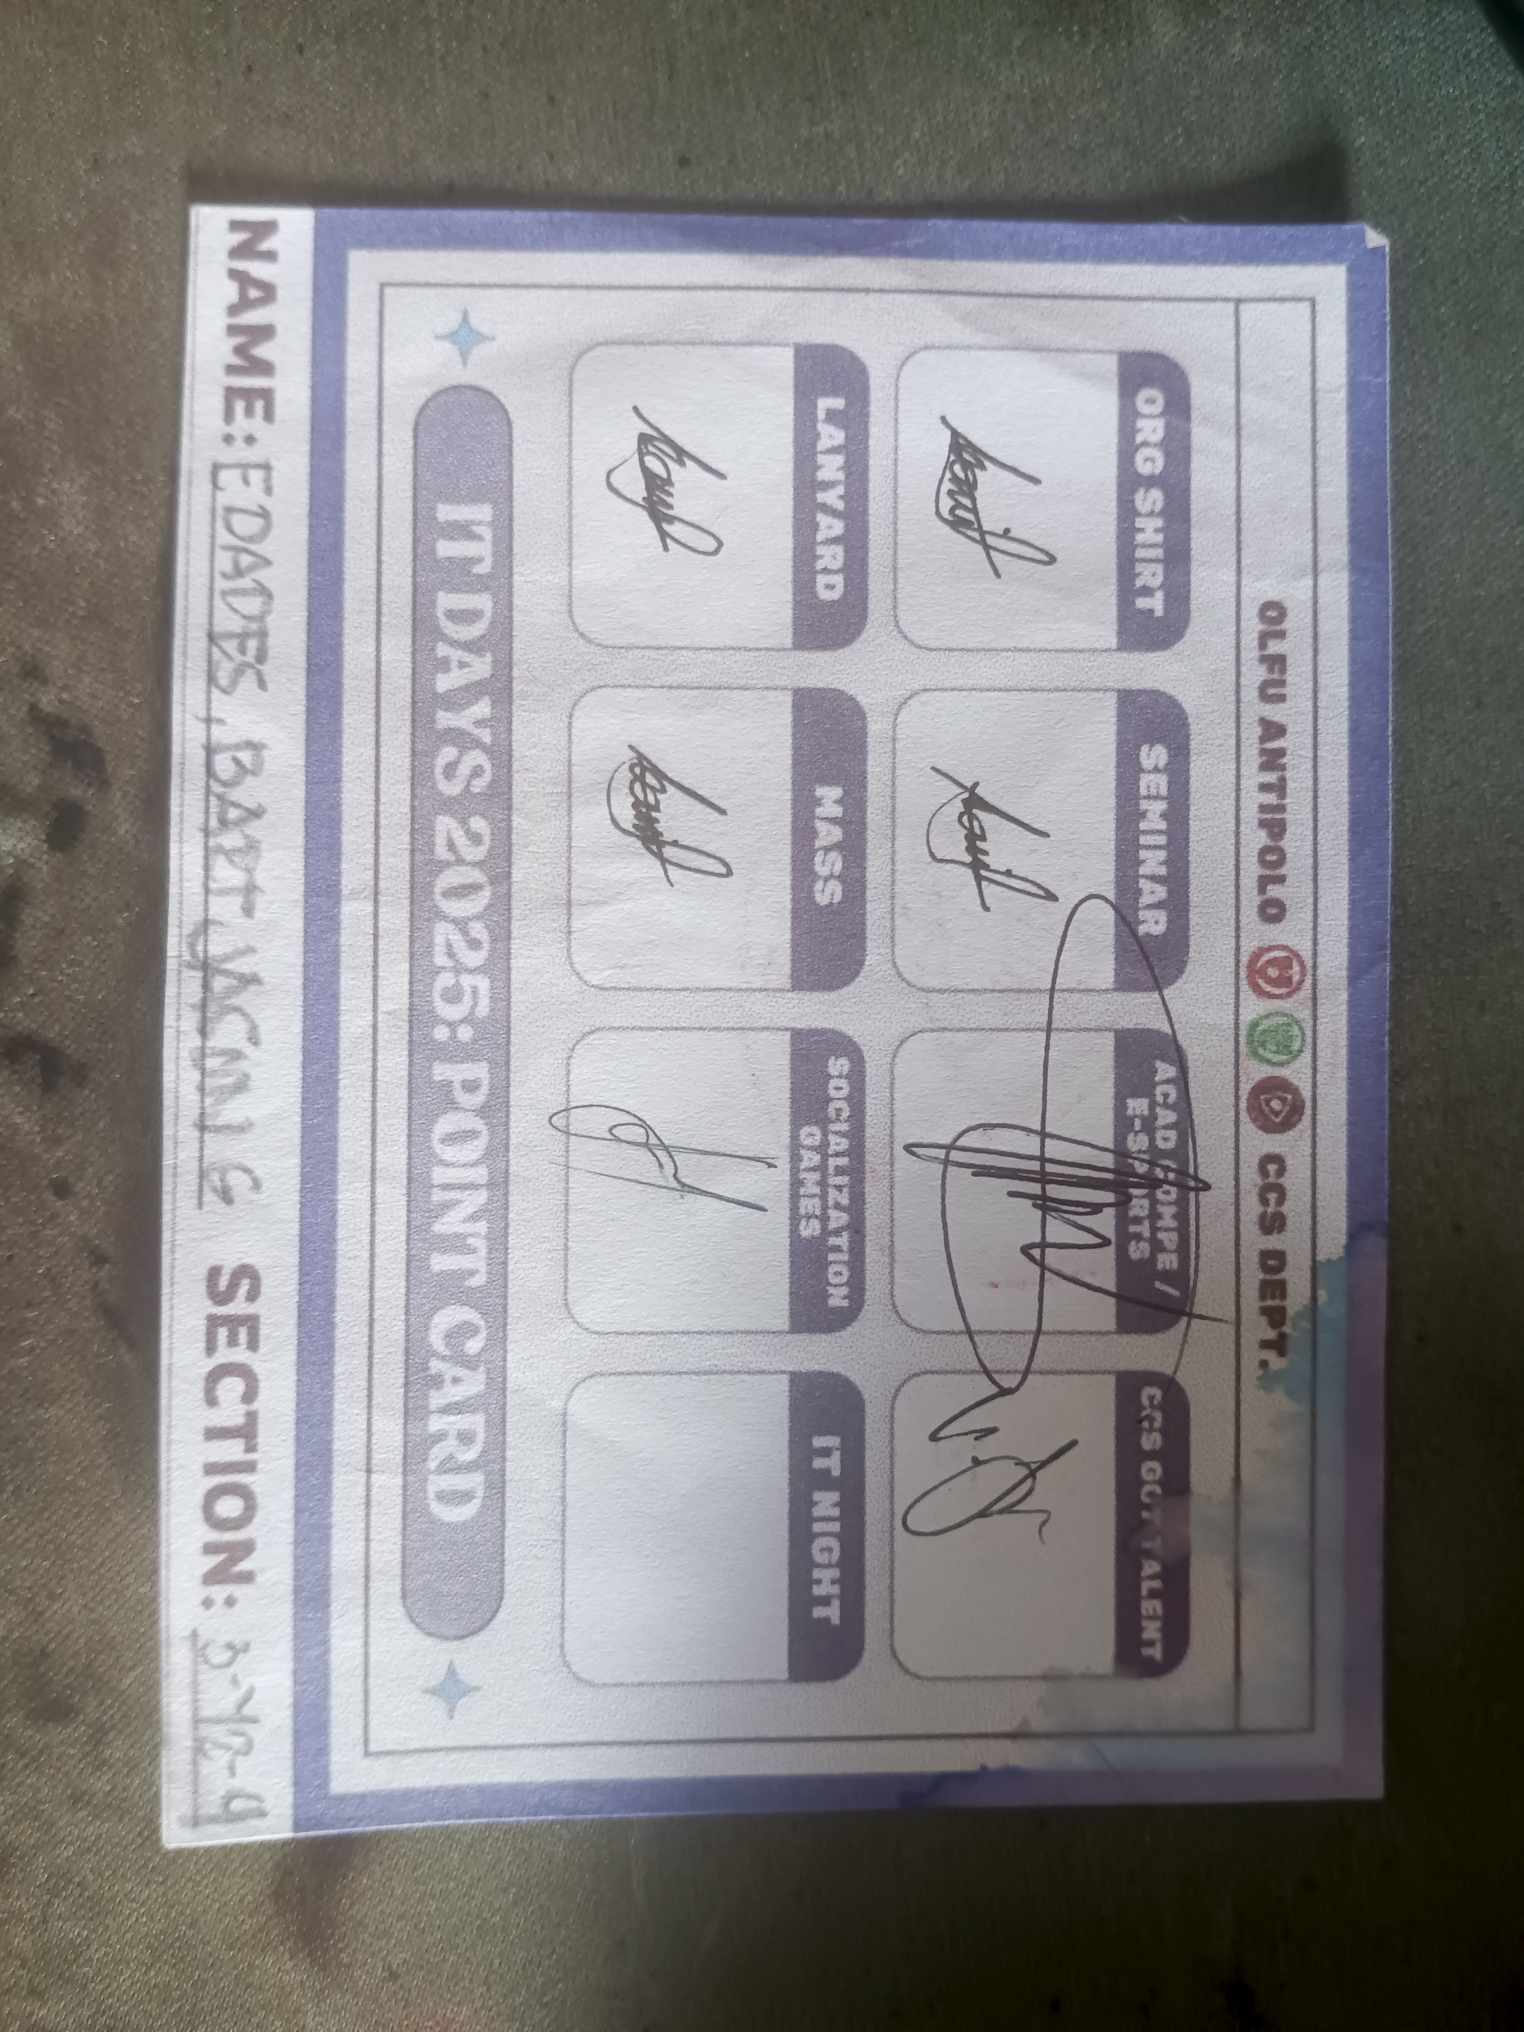 OLFU ANTIPOLO CCS DEPT.
ORG SHIRT SEMINAR ACAD COMPE / E-SPORTS CCS GOT TALENT
LANYARD MASS SOCIALIZATION GAMES IT NIGHT
IT DAYS 2025: POINT CARD
NAME: EDADES, BART G SECTION: 3-Y2-4